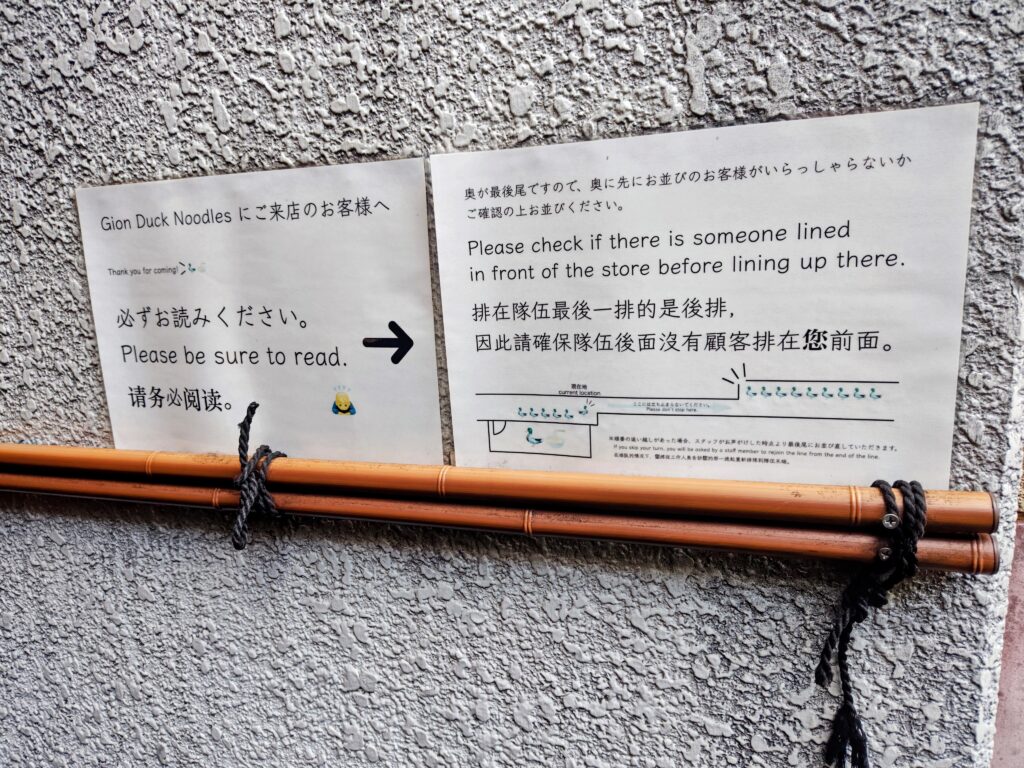 Gion Duck Noodles にご来店のお客様へ
Thank you for coming!
必ずお読みください。
Please be sure to read.
请务必阅读。
奥が最後尾ですので、奥に先にお並びのお客様がいらっしゃらないか
ご確認の上お並びください。
Please check if there is someone lined
in front of the store before lining up there.
排在隊伍最後一排的是後排，
因此請確保隊伍後面沒有顧客排在您前面。
現在地
current location
ここには立ち止まらないでください。
Please don't stop here.
※順番の追い越しがあった場合、スタッフがお声がけした時点より最後尾にお並び直していただきます。
If you skip your turn, you will be asked by a staff member to rejoin the line from the end of the line.